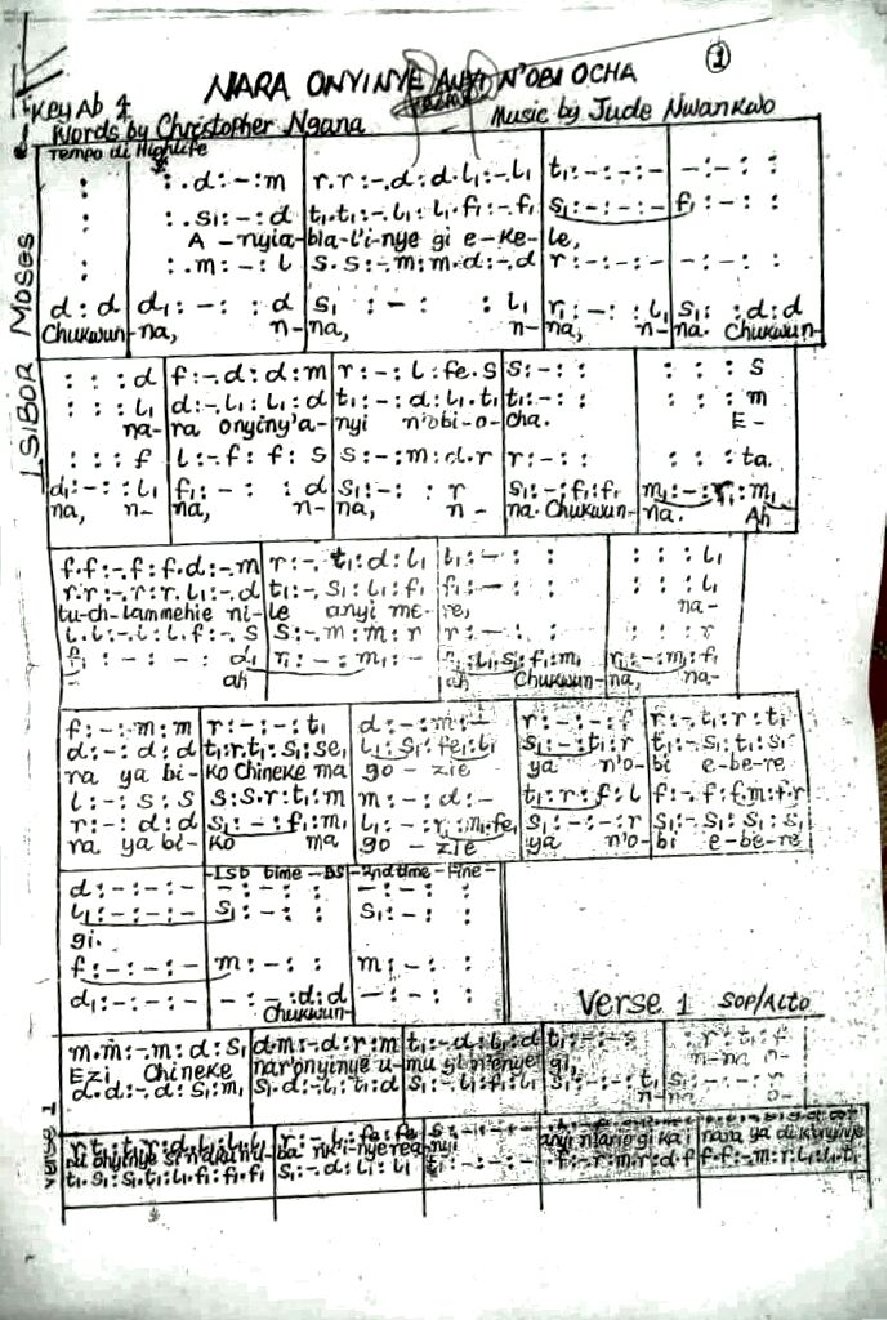 NARA ONYINYE ANYI N'OBI OCHA
1
Key Ab
Words by Christopher Ngana
Music by Jude Nwankwo
Tempo di Highlife
ISIBOR MOSES
: | : . d : – : m | r . r : – . d : d . l₁ : – . l₁ | t₁ : – : – : – | – : – : :
: | : . s₁ : – : d | t₁ . t₁ : – . l₁ : l₁ . f₁ : – . f₁ | s₁ : – : – : – | f₁ : – : :
A – nyia- bia-l'i-nye gi e-ke- le,
: | : . m : – : l | s . s : – . m : m . d : – . d | r : – : – : – | – : – : :
d : d | d₁ : – : : d | s₁ : – : : l₁ | r₁ : – : : l₁ | s₁ : : d : d
Chukwun- na, n- na, n- na, n- na. Chukwun-
: : : d | f : – . d : d : m | r : – : l : fe . s | s : – : : | : : : s
: : : l₁ | d : – . l₁ : l₁ : d | t₁ : – : d : l₁ . t₁ | t₁ : – : : | : : : m
na- ra onyiny'a- nyi n'obi-o- cha. E-
: : : f | l : – . f : f : s | s : – : m : d . r | r : – : : | : : : ta.
d₁ : – : : l₁ | f₁ : – : : d | s₁ : – : : r | s₁ : – : f₁ : f₁ | m₁ : – : r₁ : m₁
na, n- na, n- na, n- na. Chukwun- na. Ah
f . f : – . f : f . d : – . m | r : – . t₁ : d : l₁ | l₁ : – : : | : : : l₁
r . r : – . r : r . l₁ : – . d | t₁ : – . s₁ : l₁ : f₁ | f₁ : – : : | : : : l₁
tu-ch-lammehie ni- le anyi me- re, na-
l . l : – . l : l . f : – . s | s : – . m : m : r | r : – : : | : : : r
f₁ : – : – : d₁ | r₁ : – : m₁ : – | : l₁ . s₁ : f₁ : m₁ | r₁ : – : m₁ : f₁
ah ah Chukwun- na, na-
f : – : m : m | r : – : – : t₁ | d : – : m : – | r : – : – : f | r : – . t₁ : r : t₁
d : – : d : d | t₁ : r . t₁ : s₁ : se₁ | l₁ : s₁ : fe₁ : l₁ | s₁ : – : t₁ : r | t₁ : – . s₁ : t₁ : s₁
ra ya bi- ko Chineke ma go – zie ya n'o- bi e-be-re
l : – : s : s | s : s . r : t₁ : m | m : – : d : – | t₁ : r : f : l | f : – . f : f . m : f . r
r : – : d : d | s₁ : – : f₁ : m₁ | l₁ : – : r₁ : m₁ . fe₁ | s₁ : – : – : r | s₁ : – . s₁ : s₁ : s₁
ra ya bi- ko ma go – zie ya n'o- bi e-be-re
-1st time – DS -2nd time – Fine -
d : – : – : – | – : – : : | – : – : :
l₁ : – : – : – | s₁ : – : : | s₁ : – : :
gi.
f : – : – : – | m : – : : | m : – : :
d₁ : – : – : – | – : – : d : d | – : – : :
Chukwun-
Verse 1 SOP/ALTO
m . m : – . m : d : s₁ | d . m : – . d : r : m | t₁ : – . d : l₁ : d | t₁ : – : – : | : r : t₁ : f
Ezi Chineke nar'onyinye u-mu gi n'enye gi, n-na o-
d . d : – . d : s₁ : m₁ | s₁ . d : – . l₁ : t₁ : d | s₁ : – . l₁ : f₁ : l₁ | s₁ : – : – : t₁ | s₁ : – : – : s
n-na o-
Verse 1
t₁ . s₁ : s₁ . t₁ : l₁ . f₁ : f₁ . f₁ | s₁ : – . d : l₁ : l₁ | t₁ : – : – : – | f : – r : m . r : d . f | f . f : – . m : r : l₁ : l₁ . t₁